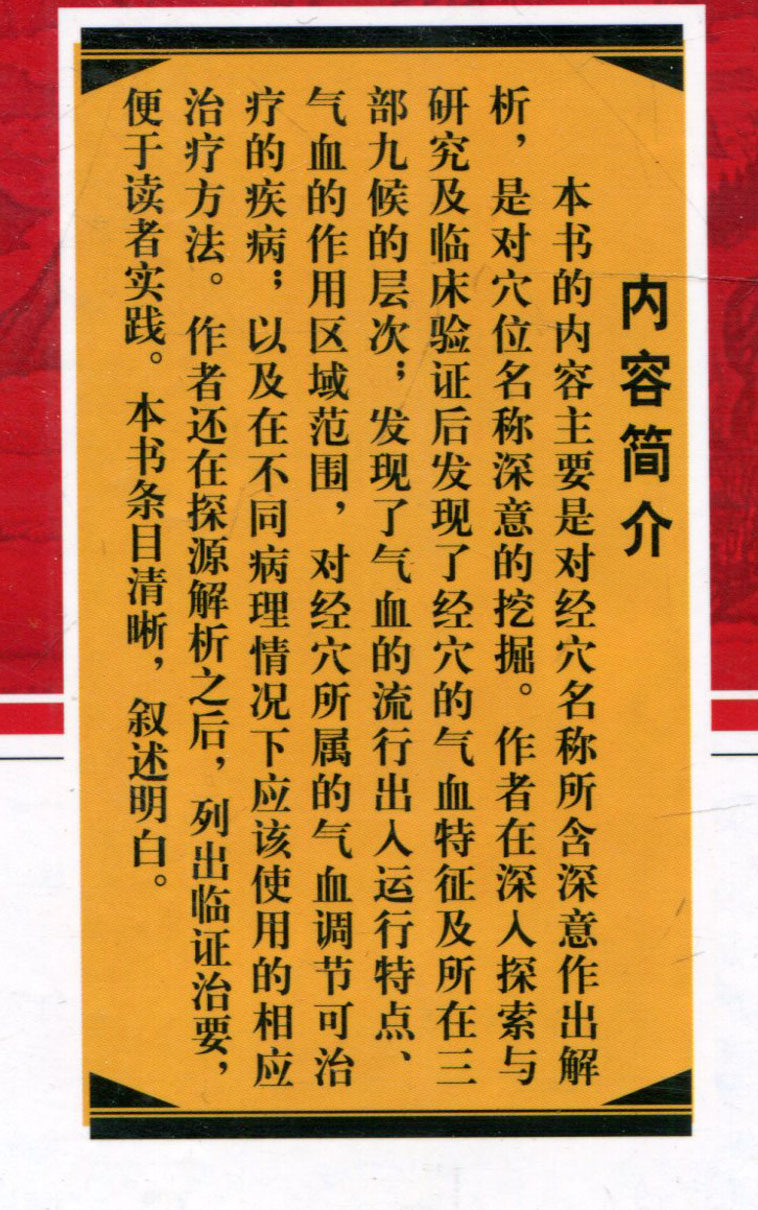 内容简介
本书的内容主要是对经穴名称所含深意作出解
析，是对穴位名称深意的挖掘。作者在深入探索与
研究及临床验证后发现了经穴的气血特征及所在三
部九候的层次；发现了气血的流行出入运行特点、
气血的作用区域范围，对经穴所属的气血调节可治
疗的疾病；以及在不同病理情况下应该使用的相应
治疗方法。作者还在探源解析之后，列出临证治要，
便于读者实践。本书条目清晰，叙述明白。